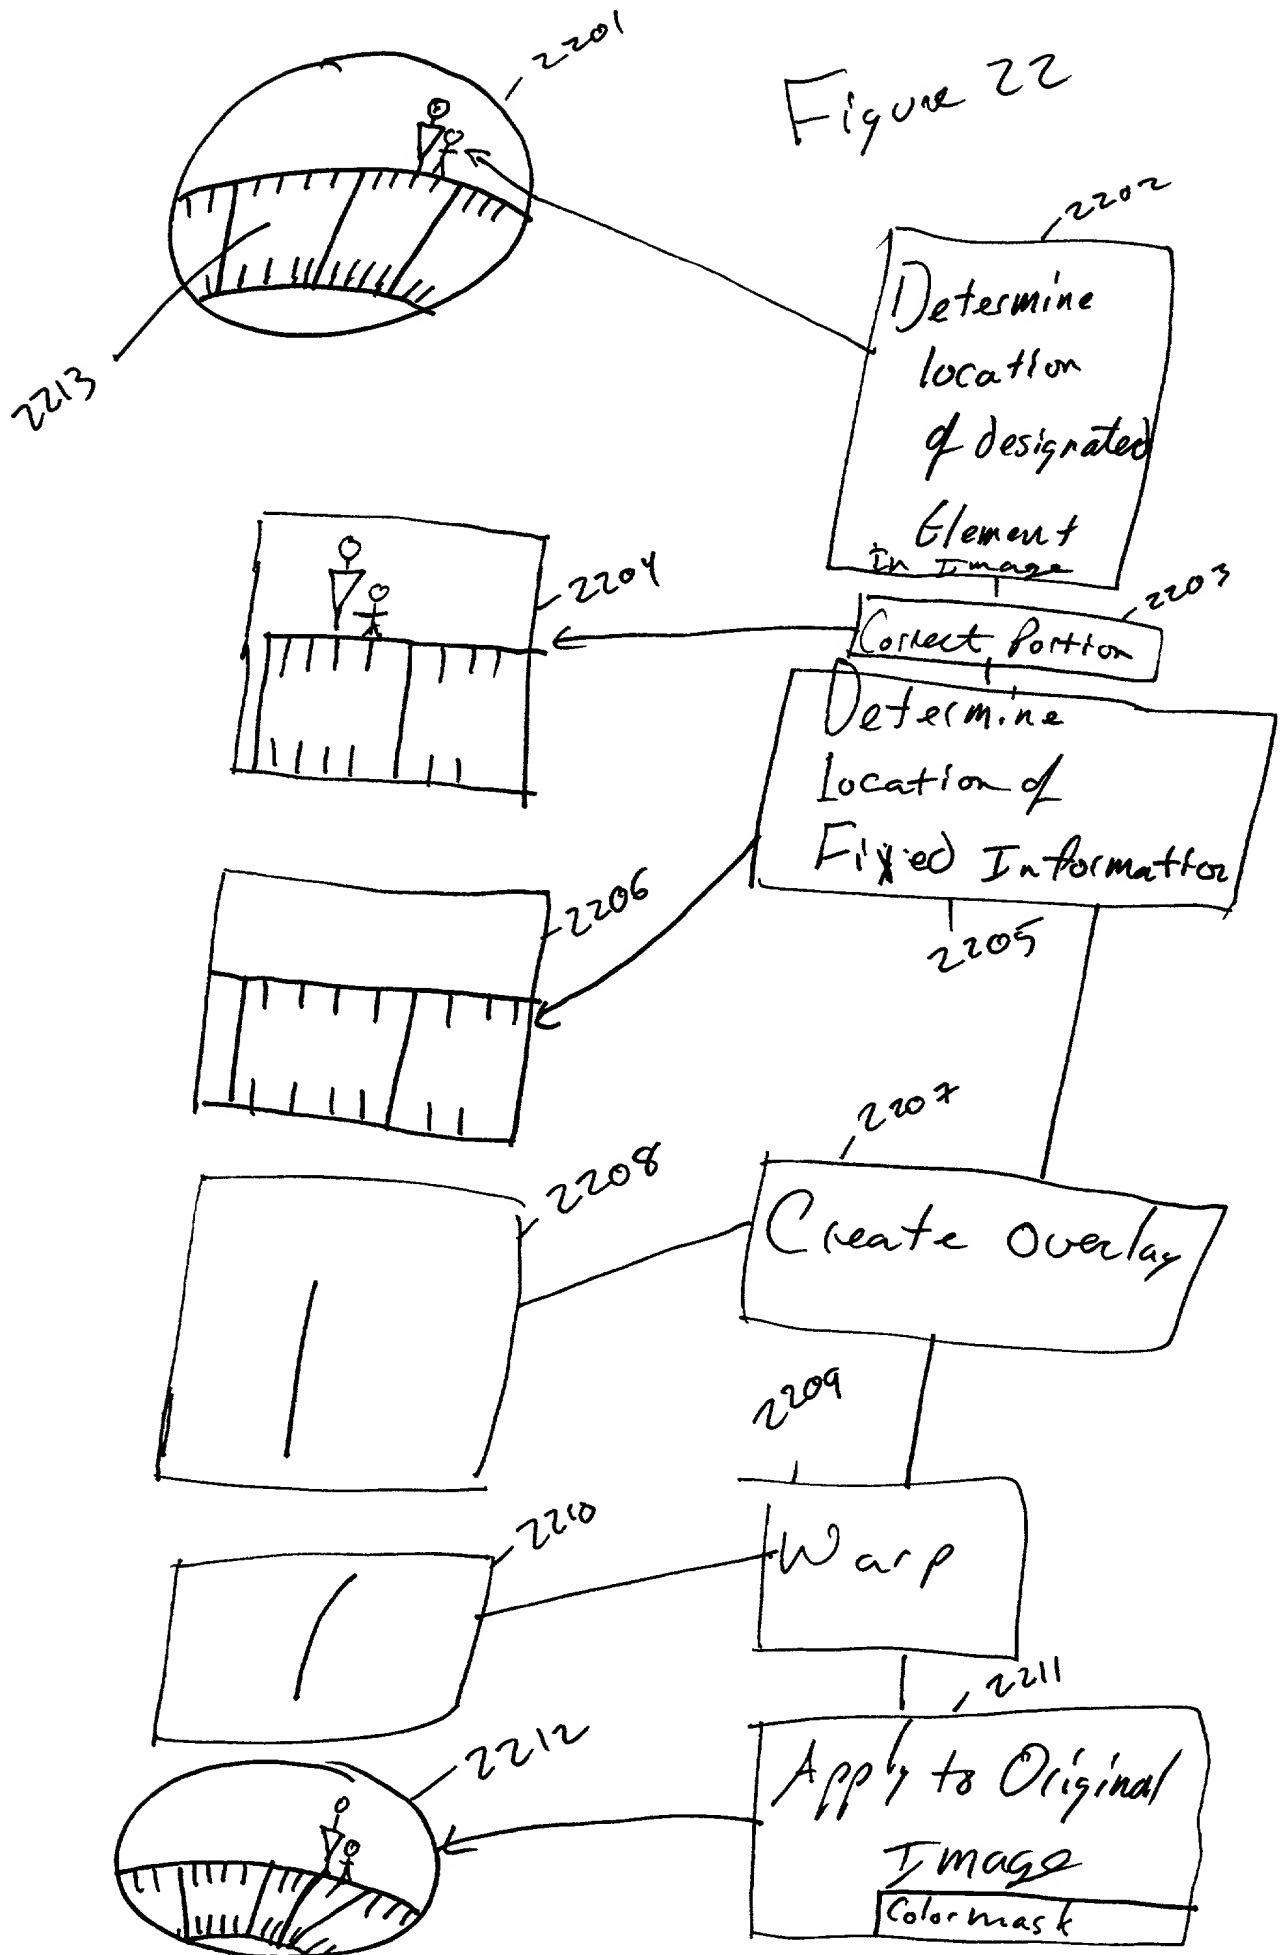 2201
Figure 22
2202
Determine
location
of designated
Element
In Image
2203
Correct Portion
2213
2204
Determine
Location of
Fixed Information
2205
2206
2207
Create Overlay
2208
2209
Warp
2210
2211
Apply to Original
Image
Colormask
2212